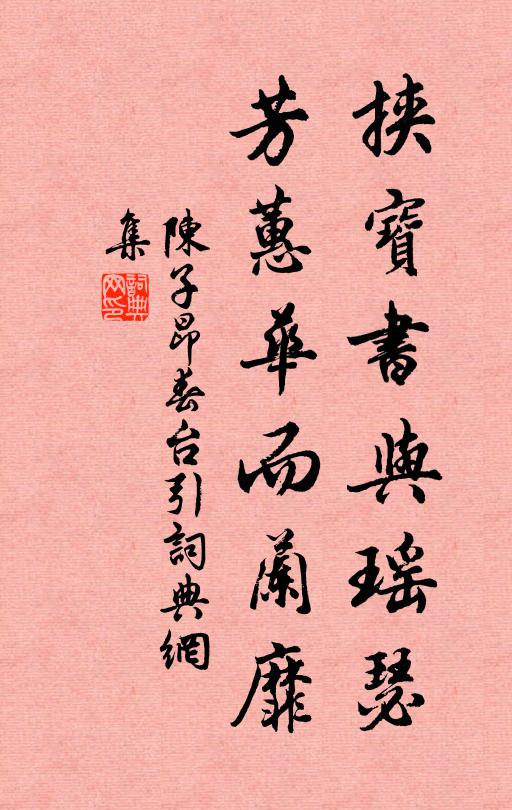 挾寶書與瑶瑟
芳蕙華而蘭靡
陳子昂春台引詞典網
集
詞典网印